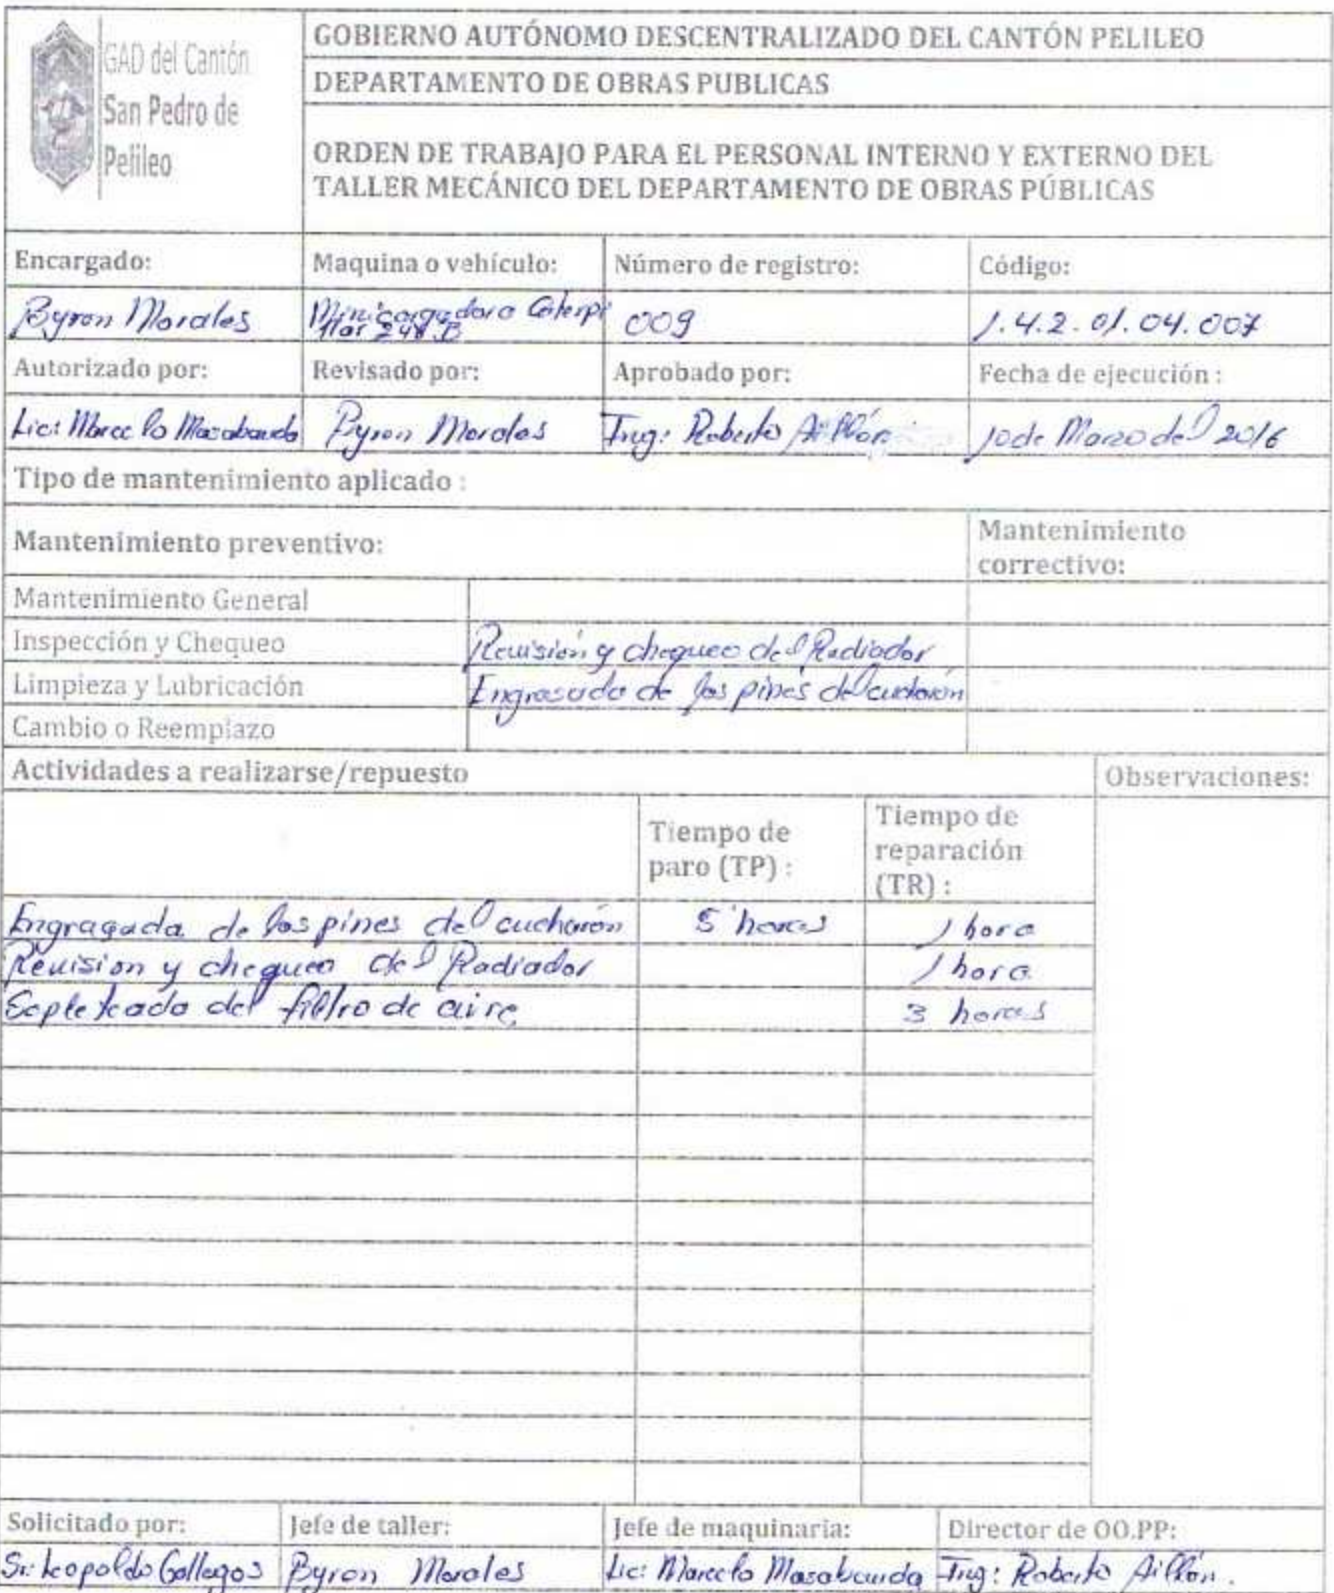 GAD del Cantón
San Pedro de
Pelileo
GOBIERNO AUTÓNOMO DESCENTRALIZADO DEL CANTÓN PELILEO
DEPARTAMENTO DE OBRAS PUBLICAS
ORDEN DE TRABAJO PARA EL PERSONAL INTERNO Y EXTERNO DEL
TALLER MECÁNICO DEL DEPARTAMENTO DE OBRAS PÚBLICAS
Encargado: Maquina o vehículo: Número de registro: Código:
Byron Morales Minicargadora Caterpi 009 1.4.2.01.04.007
llar 248 B
Autorizado por: Revisado por: Aprobado por: Fecha de ejecución :
Lic: Marcelo Masabanda Byron Morales Ing: Roberto Aillón 10 de Marzo del 2016
Tipo de mantenimiento aplicado :
Mantenimiento preventivo: Mantenimiento
correctivo:
Mantenimiento General
Inspección y Chequeo Revisión y chequeo del Radiador
Limpieza y Lubricación Engrasado de los pines del cucharon
Cambio o Reemplazo
Actividades a realizarse/repuesto Observaciones:
Tiempo de
paro (TP) :
Tiempo de
reparación
(TR) :
Engragada de los pines del cucharón 5 horas 1 hora
Revision y chequeo del Radiador 1 hora
Sopleteado del filtro de aire 3 horas
Solicitado por: Jefe de taller: Jefe de maquinaria: Director de OO.PP:
Sr: Leopoldo Gallegos Byron Morales Lic: Marcelo Masabanda Ing: Roberto Aillón.